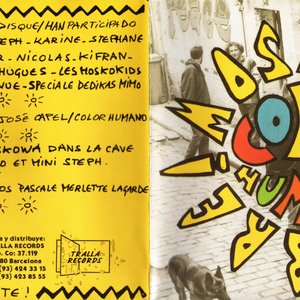 DISQUE/HAN PARTICIPADO
EPH-KARINE-STEPHANE
R-NICOLAS-KIFRAN-
HUGUES-LES MOSKOKIDS
VUE-SPECIALE DEDIKAS MIMO
JOSÉ CAPEL/COLOR HUMANO
SKOWA DANS LA CAVE
O ET MINI STEPH.
OS PASCALE MERLETTE LAGARDE
a y distribuye:
LLA RECORDS
. Co: 37.119
80 Barcelona
(93) 424 33 15
(93) 423 85 55
TRALLA
RECORDS
TE'!